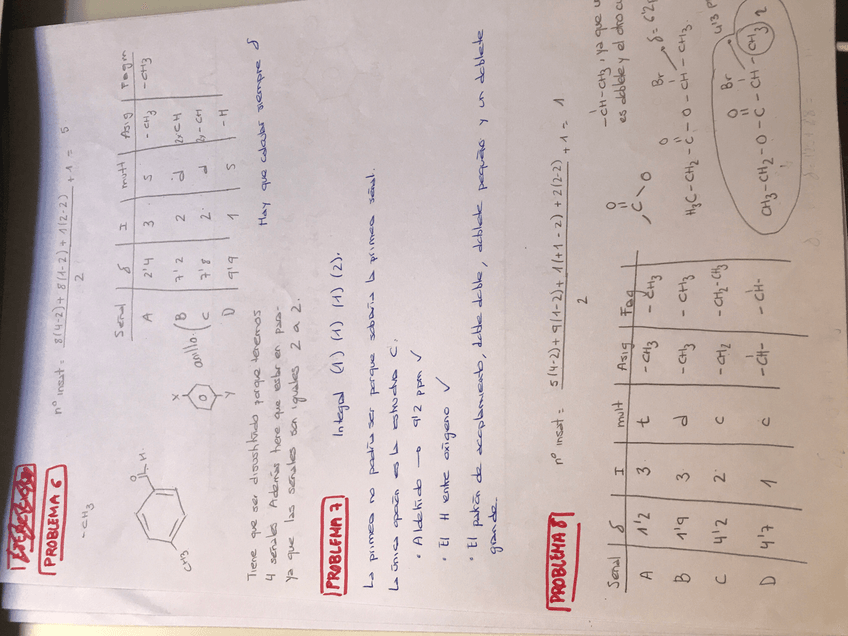 PROBLEMA 6
nº insat = 8(4-2)+8(1-2)+1(2-2) / 2 + 1 = 5
-CH3
CH3
O
H
X
Y
anillo
Señal | δ | I | mult | Asig | Fragm
A | 2'4 | 3 | s | -CH3 | -CH3
B | 7'2 | 2 | d | 2x-CH
C | 7'8 | 2 | d | 2x-CH
D | 9'9 | 1 | s | -H
Tiene que ser disustituido porque tenemos
4 señales. Además tiene que estar en para-
ya que las señales son iguales 2 a 2.
Hay que calcular siempre δ
PROBLEMA 7
Integral (1) (1) (1) (2).
La primera no podría ser porque sobraría la primera señal.
La única opción es la estructura C.
· Aldehído → 9'2 ppm ✓
· El H entre oxígeno ✓
· El patrón de acoplamiento, doble doble, doblete pequeño y un doblete
grande.
PROBLEMA 8
nº insat = 5(4-2)+9(1-2)+1(+1-2)+2(2-2) / 2 + 1 = 1
Señal | δ | I | mult | Asig | Frag
A | 1'2 | 3 | t | -CH3 | -CH3
B | 1'9 | 3 | d | -CH3 | -CH3
C | 4'2 | 2 | c | -CH2 | -CH2-CH3
D | 4'7 | 1 | c | -CH- | -CH-
-CH-CH3, ya que
es doblete y el otro
O
C
O
Br
δ=6'2
O
H3C-CH2-C-O-CH-CH3
4'3
O Br
CH3-CH2-O-C-CH-CH3
2